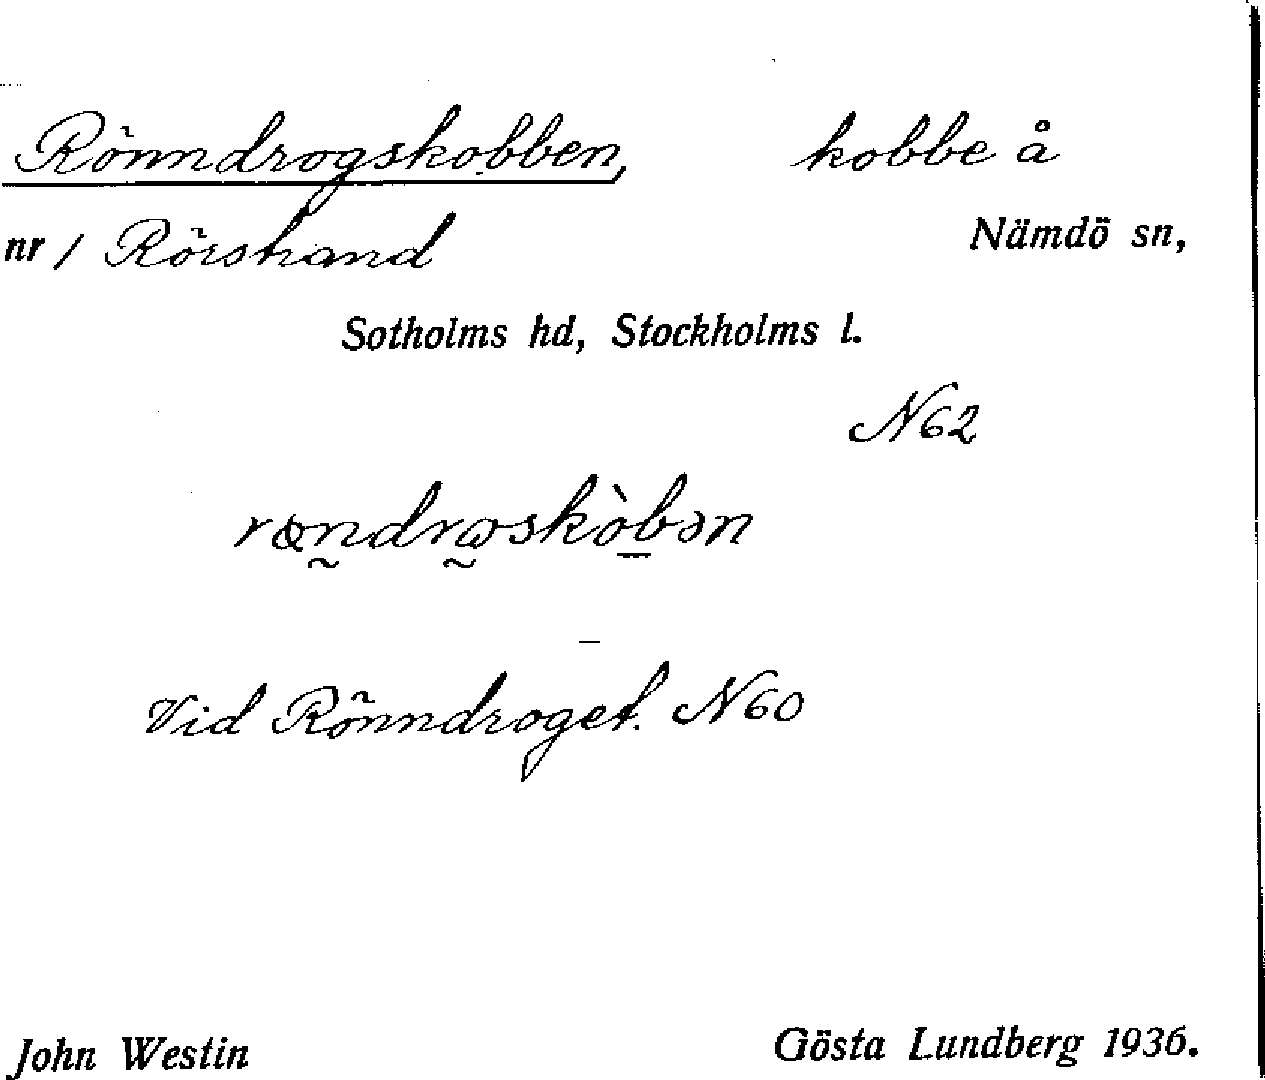 Rönndrogskobben, kobbe å
nr 1 Rörstrand Nämdö sn,
Sotholms hd, Stockholms l.
N62
Vid Rönndroget. N60
John Westin Gösta Lundberg 1936.